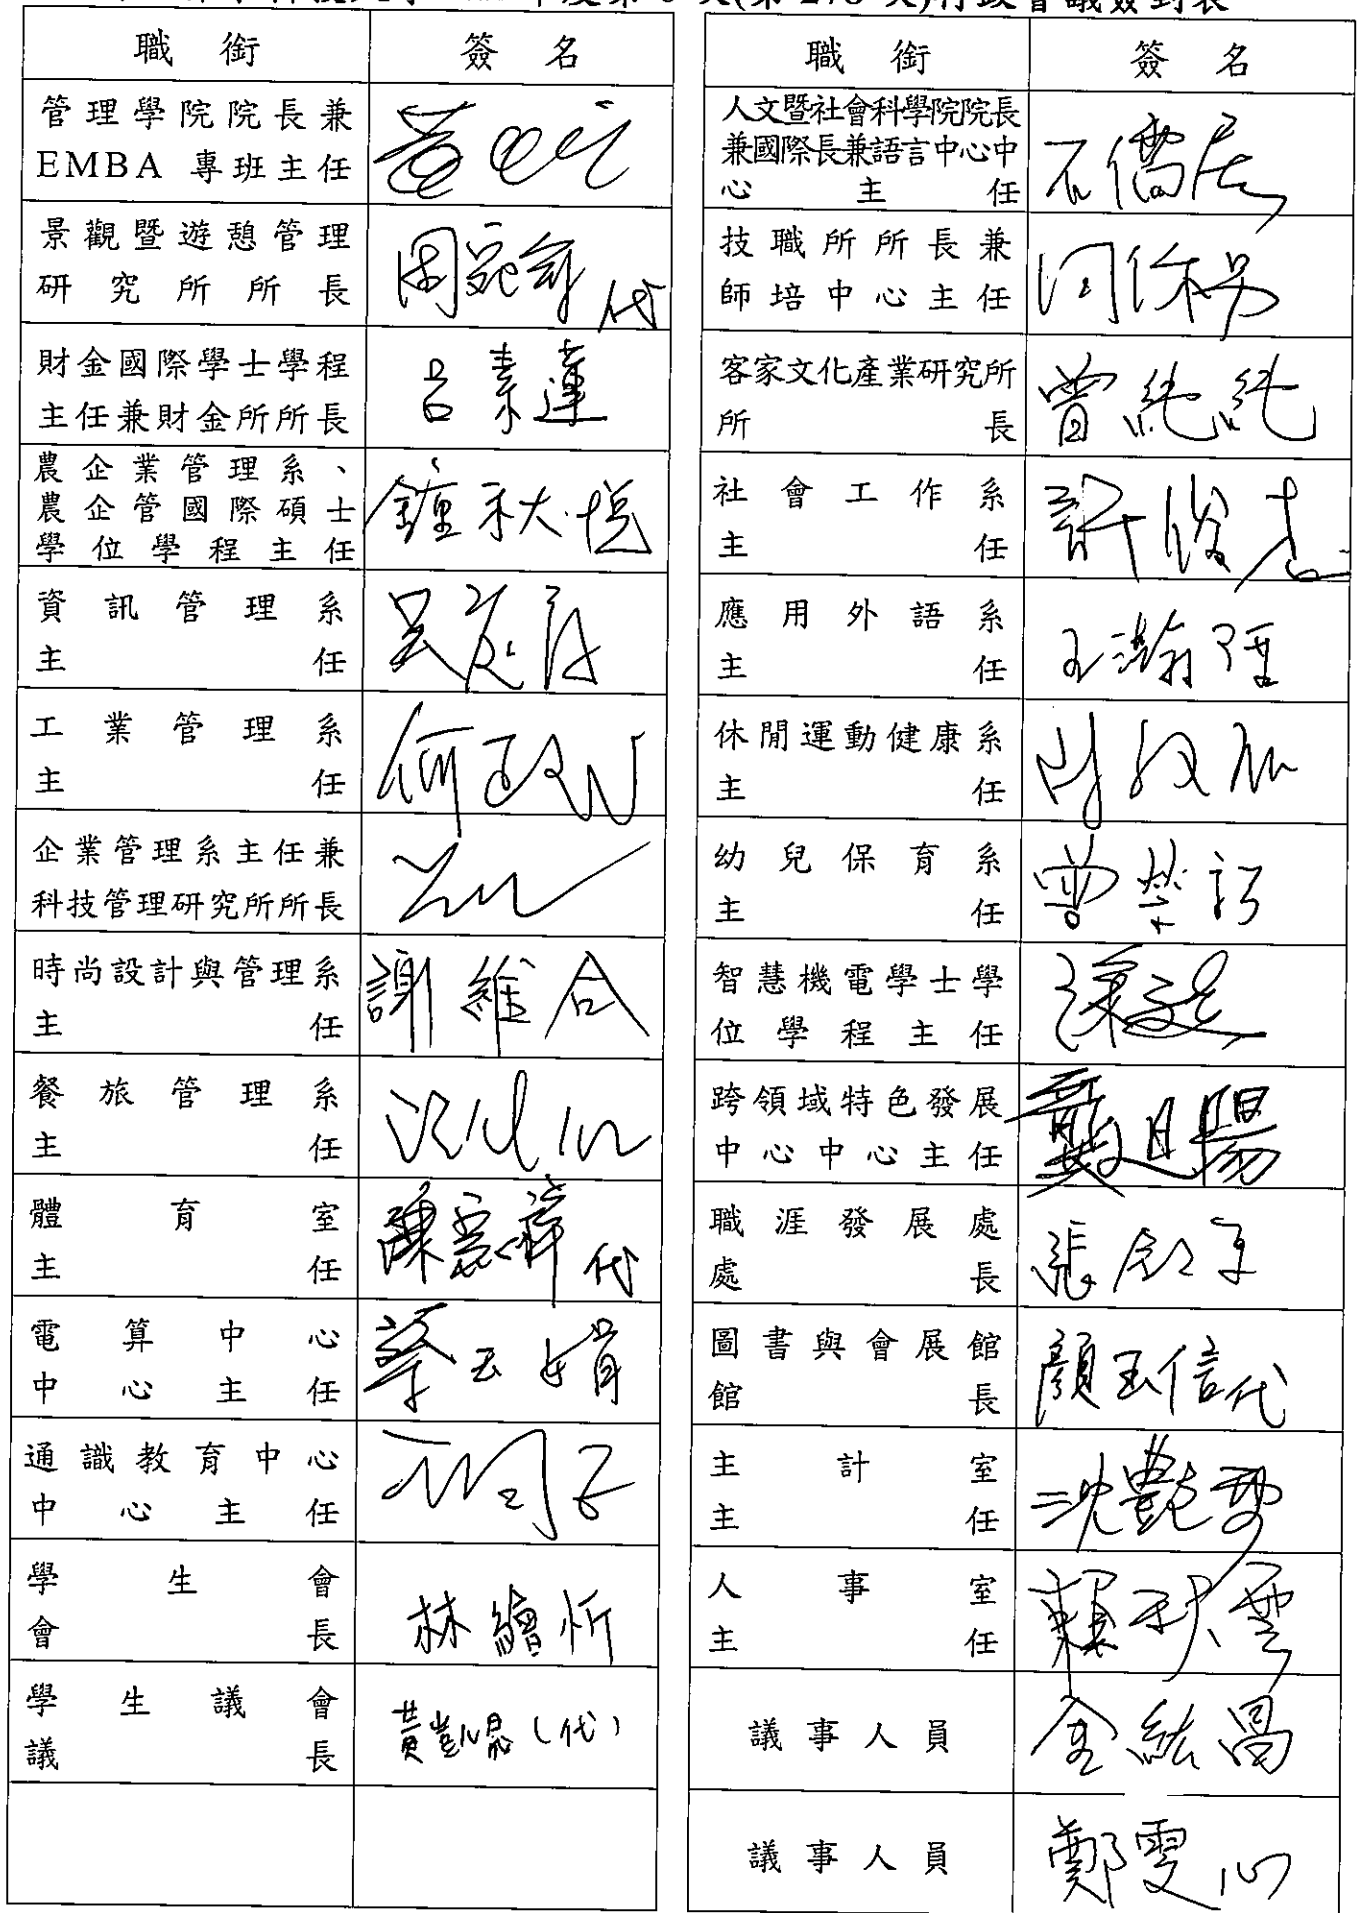 職銜 簽名
管理學院院長兼
EMBA 專班主任
景觀暨遊憩管理
研究所所長
代
財金國際學士學程
主任兼財金所所長
呂素蓮
農企業管理系、
農企管國際碩士
學位學程主任
鐘秋悅
資訊管理系
主任
工業管理系
主任
何正
企業管理系主任兼
科技管理研究所所長
時尚設計與管理系
主任
謝維合
餐旅管理系
主任
體育室
主任
陳 代
電算中心
中心主任
蔡玉娟
通識教育中心
中心主任
學生會
會長
林繪忻
學生議會
議長
黃凱 (代)
職銜 簽名
人文暨社會科學院院長
兼國際長兼語言中心中
心主任
石儒居
技職所所長兼
師培中心主任
客家文化產業研究所
所長
曾純純
社會工作系
主任
許俊
應用外語系
主任
王瀚陞
休閒運動健康系
主任
幼兒保育系
主任
曾
智慧機電學士學
位學程主任
跨領域特色發展
中心中心主任
龔旭陽
職涯發展處
處長
張
圖書與會展館
館長
顏玉信代
主計室
主任
沈艷雪
人事室
主任
賴秋雲
議事人員
金紘昌
議事人員
鄭雯心